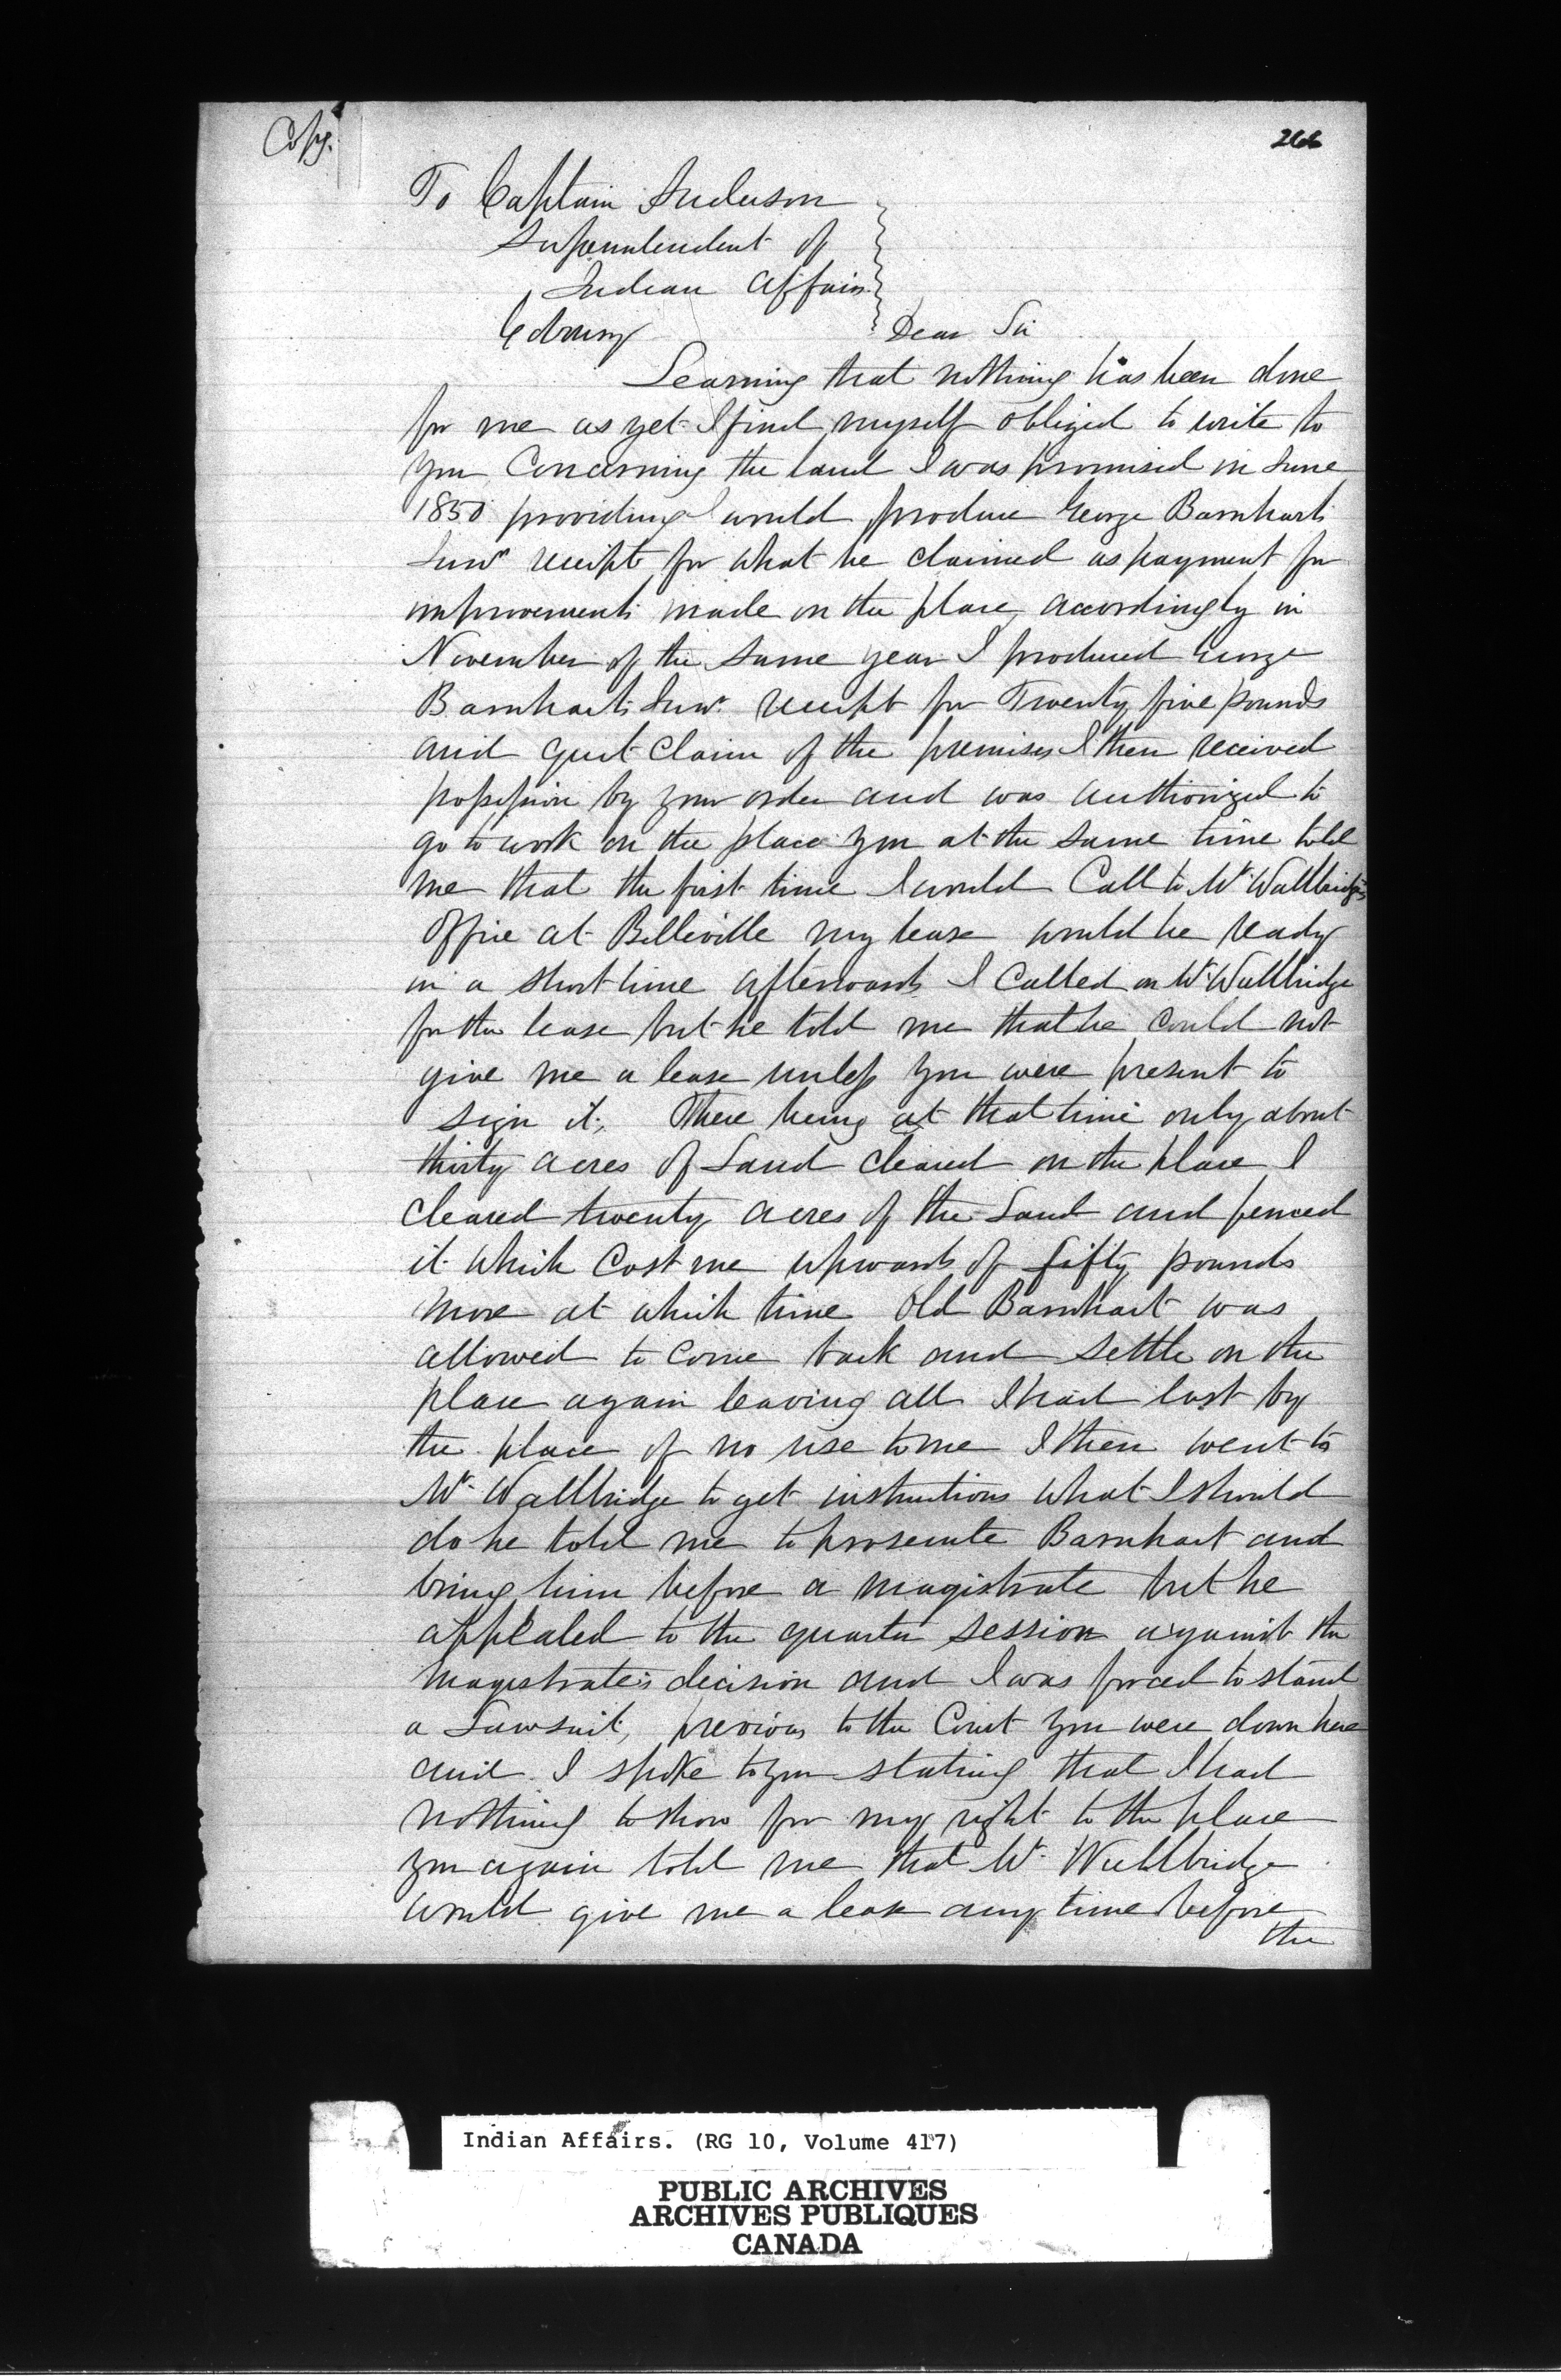 Copy.
266
To Captain Anderson
Superintendent of
Indian Affairs
Cobourg
Dear Sir
Learning that nothing has been done
for me as yet I find myself obliged to write to
you Concerning the land I was promised in June
1850 providing I would produce George Barnharts
Senr receipt for what he claimed as payment for
improvements made on the place, accordingly in
November of the same year I produced George
Barnharts Senr. receipt for Twenty five pounds
and quit Claim of the premises I then received
possession by your order and was authorized to
go to work on the place you at the same time told
me that the first time I would Call to Mr. Wallbridges
Office at Belleville my lease would be ready
in a short time afterwards I Called on Mr. Wallbridge
for the lease but he told me that he could not
give me a lease unless you were present to
sign it, There being at that time only about
thirty acres of Land cleared on the place I
cleared twenty acres of the Land and fenced
it which Cost me upwards of fifty pounds
more at which time Old Barnhart was
allowed to come back and settle on the
place again leaving all I had lost by
the place of no use to me I then went to
Mr. Wallbridge to get instructions what I should
do he told me to prosecute Barnhart and
bring him before a magistrate but he
appealed to the quarter session against the
magistrate's decision and I was forced to stand
a Lawsuit, previous to the Court you were down here
and I spoke to you stating that I had
nothing to show for my right to the place
you again told me that Mr. Wallbridge
would give me a lease any time before
the
Indian Affairs. (RG 10, Volume 417)
PUBLIC ARCHIVES
ARCHIVES PUBLIQUES
CANADA